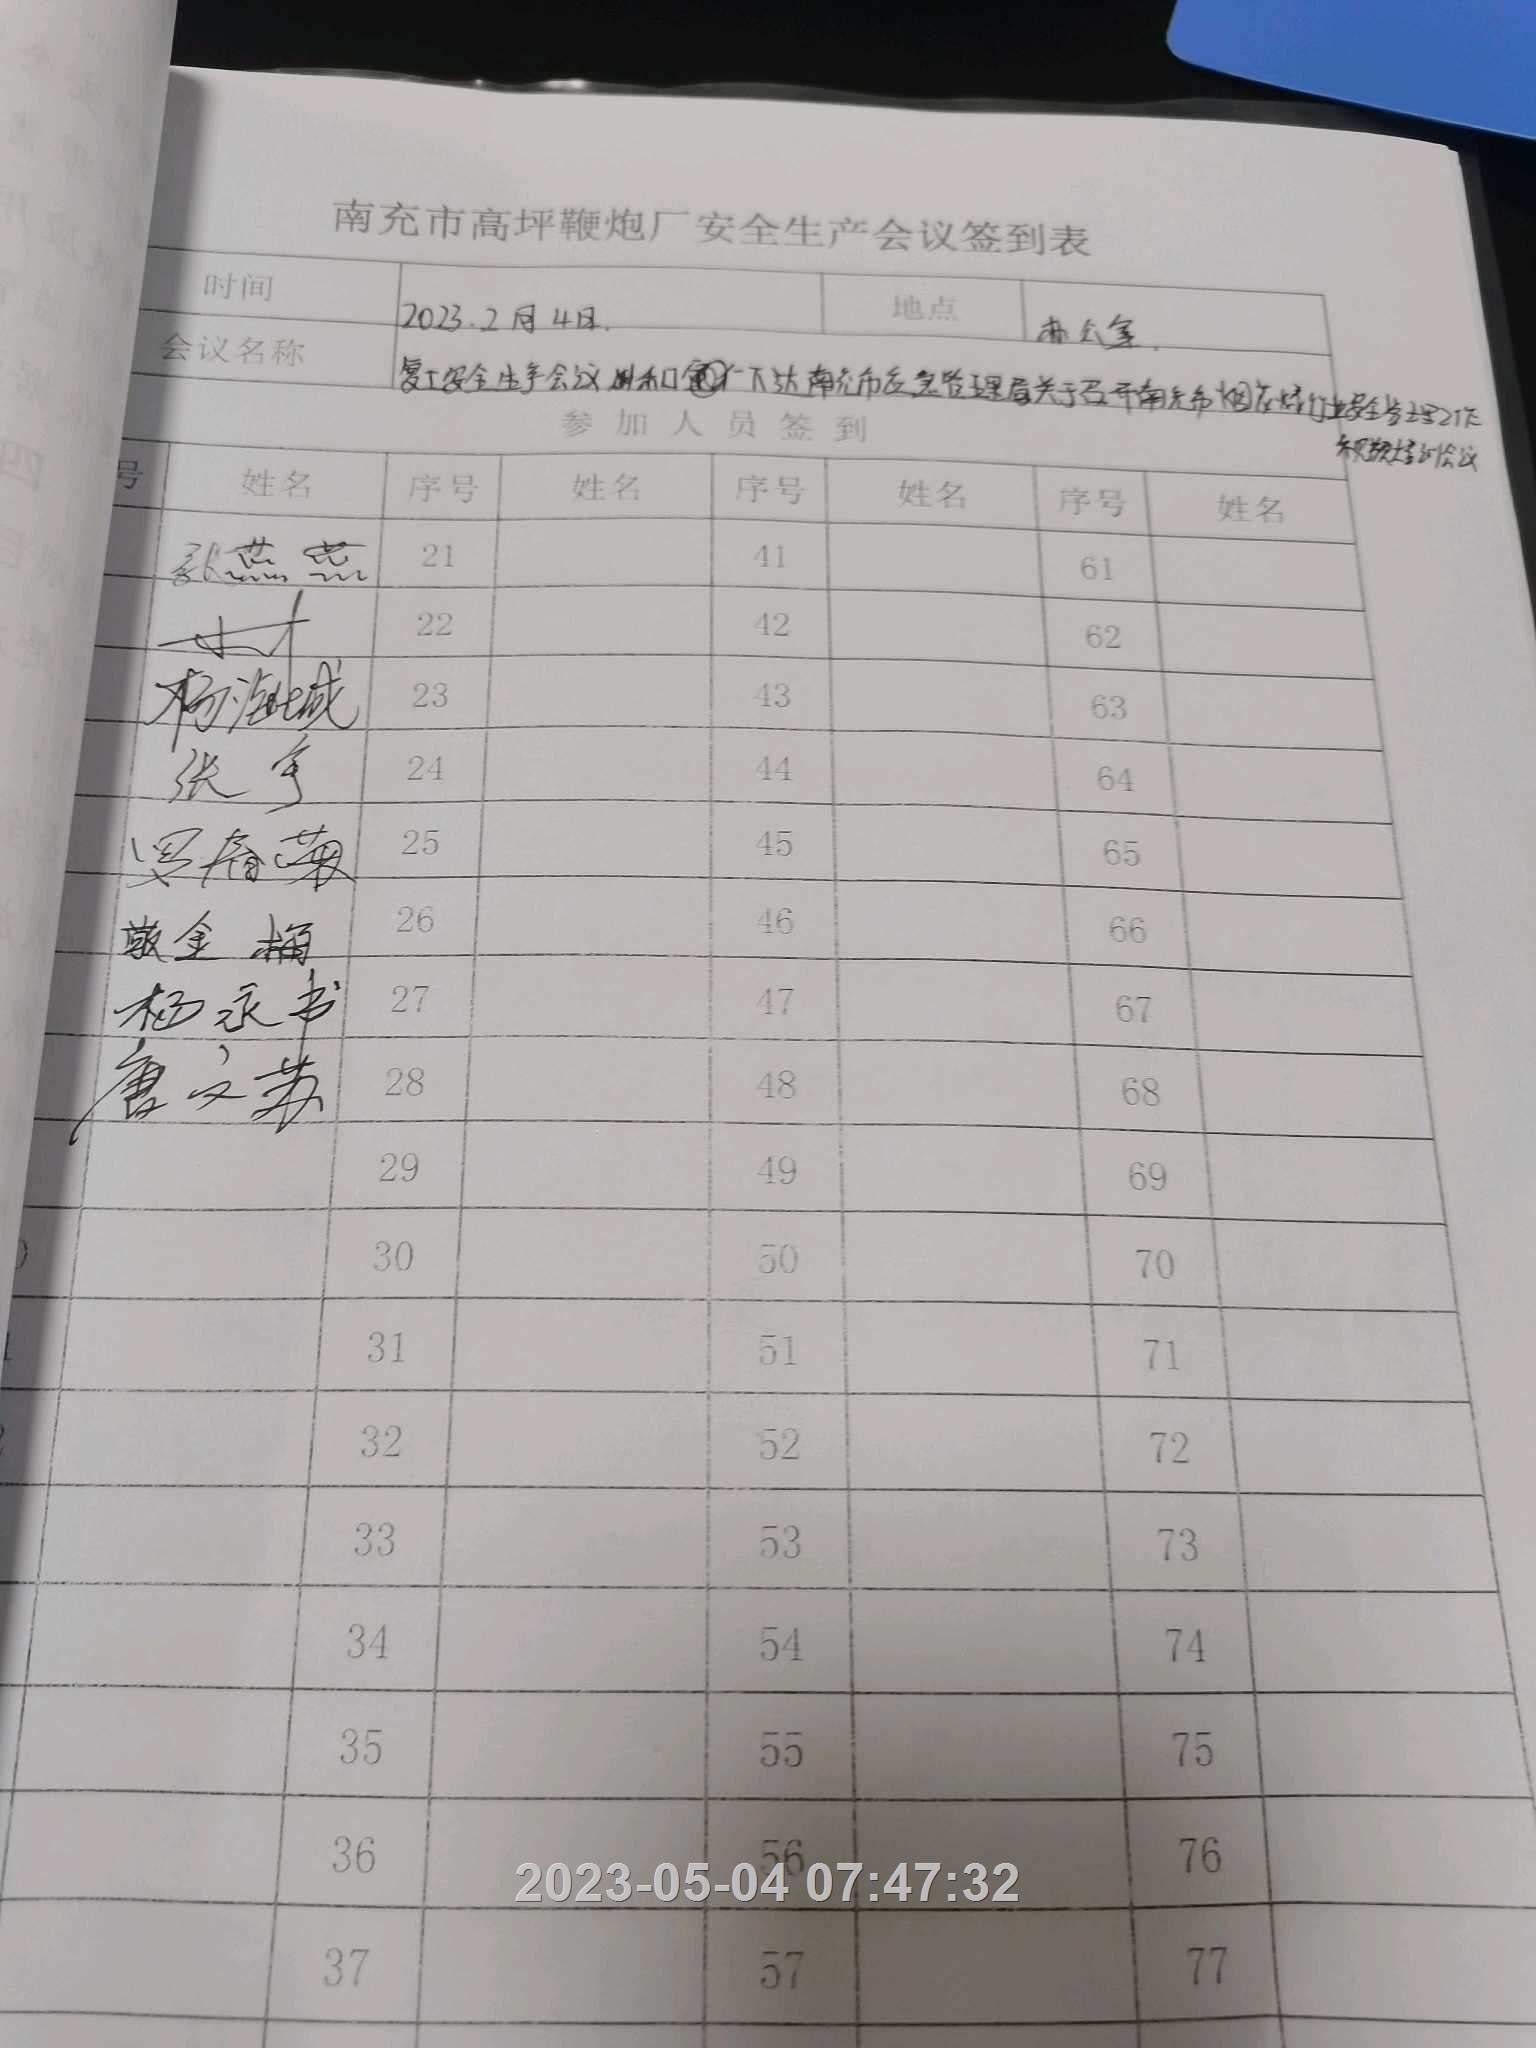 南充市高坪鞭炮厂安全生产会议签到表
时间 2023.2月4日. 地点 办公室.
会议名称 复工安全生产会议 下达南充市应急管理局关于召开南充市烟花爆竹业安全管理工作
视频培训会议
参加人员签到
号 姓名 序号 姓名 序号 姓名 序号 姓名
张燕燕 21 41 61
22 42 62
杨海城 23 43 63
张 24 44 64
25 45 65
敬金桶 26 46 66
杨永书 27 47 67
唐文苏 28 48 68
29 49 69
30 50 70
31 51 71
32 52 72
33 53 73
34 54 74
35 55 75
36 56 76
2023-05-04 07:47:32
37 57 77